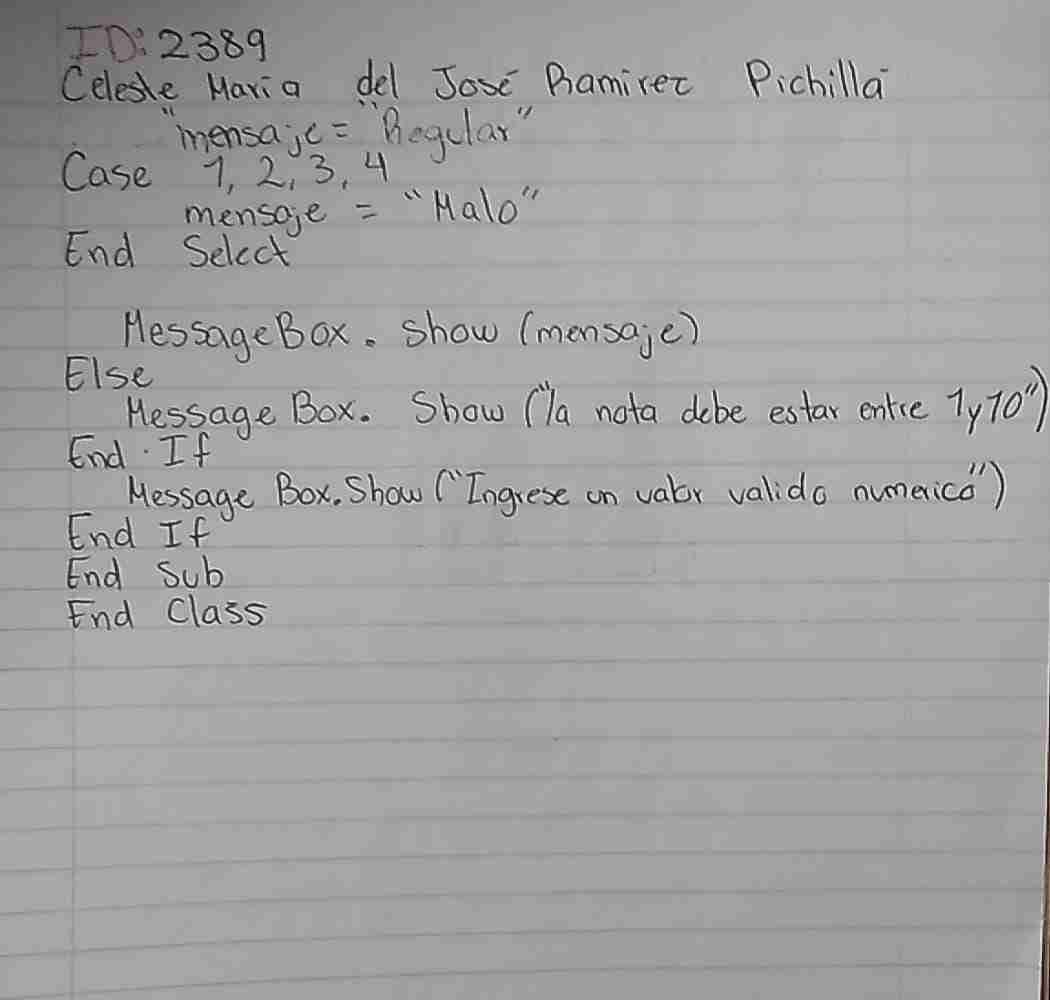 ID: 2389
Celeste Maria del José Ramirez Pichillá
"mensaje = "Regular"
Case 1, 2, 3, 4
mensaje = "Malo"
End Select
MessageBox. Show (mensaje)
Else
Message Box. Show ("la nota debe estar entre 1 y 10")
End If
Message Box. Show ("Ingrese un valor valido numerico")
End If
End Sub
End Class